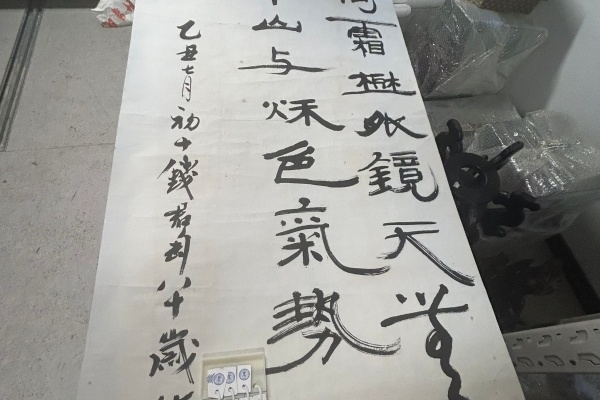 霜樹外鏡天無
山与秋色氣勢
乙丑七月初十錢君匋八十歲